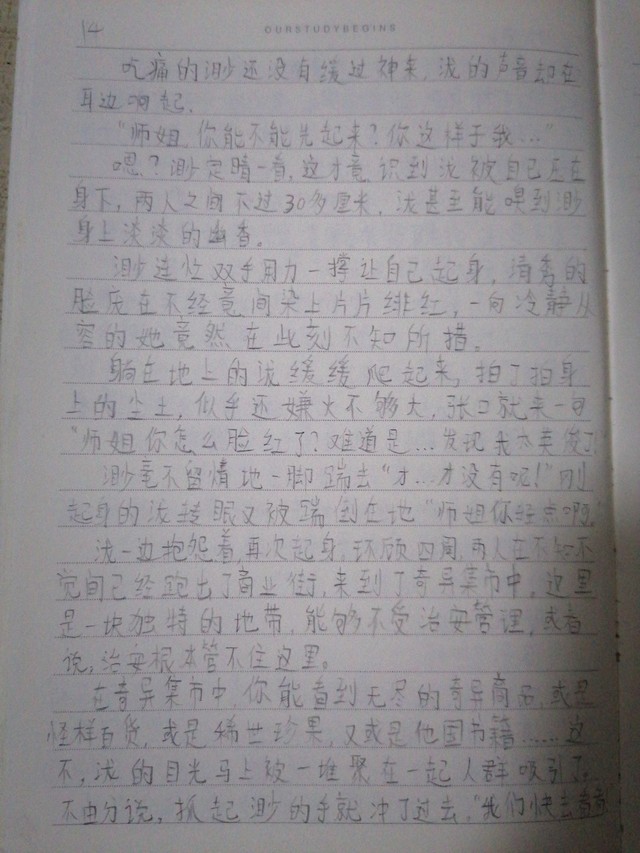 14
OURSTUDYBEGINS
吃痛的渺还没有缓过神来，泷的声音却在
耳边响起.
“师姐，你能不能先起来？你这样子我…”
嗯？渺定睛一看，这才意识到泷被自己压在
身下，两人之间不过30多厘米，泷甚至能嗅到渺
身上淡淡的幽香。
渺连忙双手用力一撑让自己起身，清秀的
脸庞在不经竟间染上片片绯红，一向冷静从
容的她竟然在此刻不知所措。
躺在地上的泷缓缓爬起来，拍了拍身
上的尘土，似乎还嫌火不够大，张口就来一句
“师姐你怎么脸红了？难道是…发现我太英俊了
渺毫不留情地一脚踹去“才…才没有呢！”刚
起身的泷转眼又被踹倒在地“师姐你轻点啊
泷一边抱怨着，再次起身，环顾四周，两人在不知不
觉间已经跑出了商业街，来到了奇异集市中，这里
是一块独特的地带，能够不受治安管理，或者
说，治安根本管不住这里。
在奇异集市中，你能看到无尽的奇异商品，或是
怪样百货，或是稀世珍果，又或是他国书籍……这
不，泷的目光马上被一堆聚在一起人群吸引了，
不由分说，抓起渺的手就冲了过去，“我们快去看看